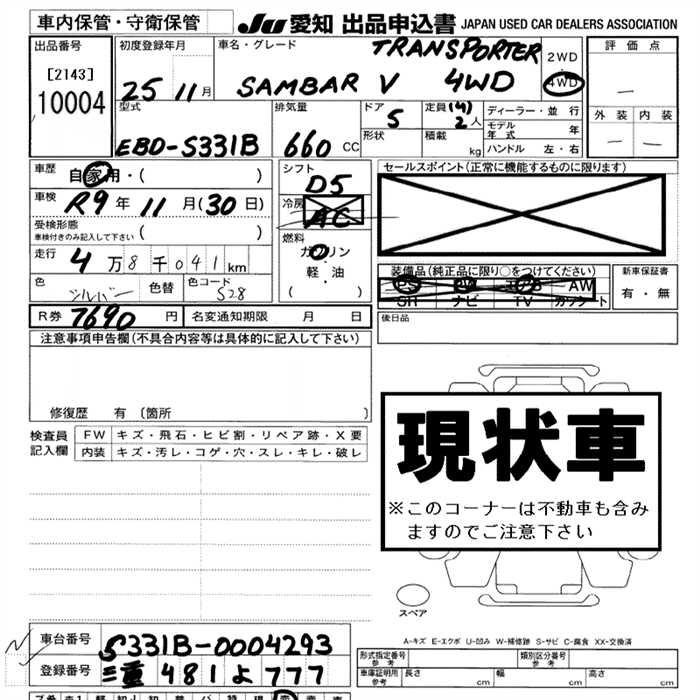 車内保管・守衛保管 JU 愛知 出品申込書 JAPAN USED CAR DEALERS ASSOCIATION
出品番号 初度登録年月 車名・グレード TRANSPORTER 2WD 評価点
[2143] 25 11月 SAMBAR V 4WD 4WD —
10004 型式 排気量 ドア 5 定員(4) 2人 ディーラー・並行 外装 内装
EBD-S331B 660 CC 形状 積載 kg モデル年式 年 — —
ハンドル 左・右
車歴 自家用・( ) シフト D5 セールスポイント(正常に機能するものに限ります)
車検 R9年 11月(30日) 冷房 AC
受検形態 ( )
車検付きのみ記入して下さい
燃料 ガソリン
走行 4万8千041km 軽・油 装備品(純正品に限り○をつけてください) 新車保証書
( ) PS PW エアB AW 有・無
色 シルバー 色替 色コード S28 SR ナビ TV カワシート
R券 7690円 名変通知期限 月 日 後日品
注意事項申告欄(不具合内容等は具体的に記入して下さい)
修復歴 有 〔箇所 〕
検査員 FW キズ・飛石・ヒビ割・リペア跡・X要
記入欄 内装 キズ・汚レ・コゲ・穴・スレ・キレ・破レ
現状車
※このコーナーは不動車も含み
ますのでご注意下さい
スペア
A-キズ E-エクボ U-凹み W-補修跡 S-サビ C-腐食 XX-交換済
車台番号 S331B-0004293 形式指定番号 参考 類別区分番号 参考
登録番号 三重 481 よ 777 車庫証明用 参考 長さ cm 幅 cm 高さ cm